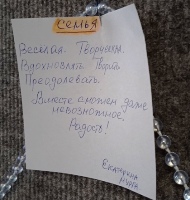 СЕМЬЯ
Весёлая. Творческая.
Вдохновлять Творить
Преодолевать.
Вместе сможем даже
невозможное.
Радость!
Екатерина